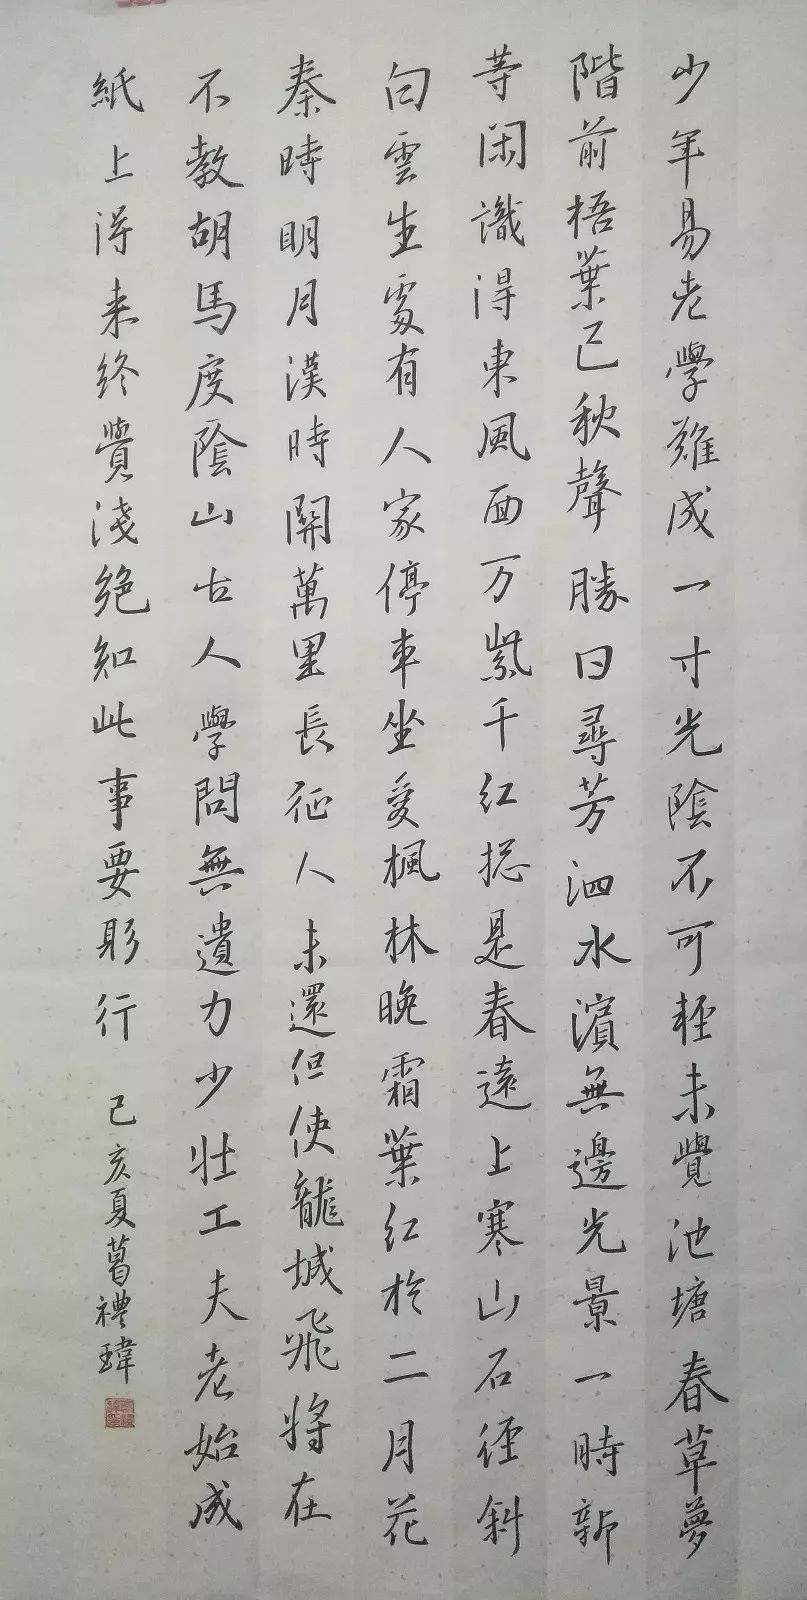 少年易老學難成一寸光陰不可輕未覺池塘春草夢
階前梧葉已秋聲勝日尋芳泗水濱無邊光景一時新
等闲識得東風面万紫千红揔是春遠上寒山石徑斜
白雲生處有人家停車坐愛楓林晚霜葉红於二月花
秦時明月漢時關萬里長征人未還但使龍城飛將在
不教胡馬度陰山古人學問無遺力少壯工夫老始成
紙上得来终覺淺绝知此事要躬行
己亥夏葛禮瑋